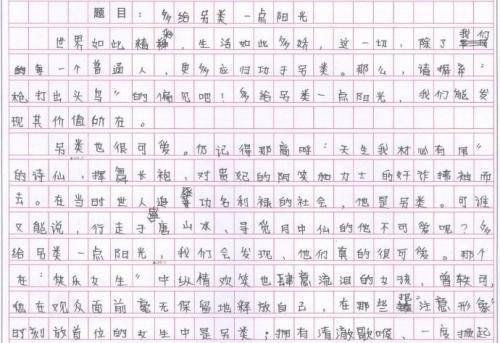 题目：多给另类一点阳光
世界如此精彩，生活如此多娇，这一切，除了我们
的每一个普通人，更多应归功于另类。那么，请摒弃“
枪打出头鸟”的偏见吧！多给另类一点阳光，我们能发
现其价值所在。
另类也很可爱。仍记得那高呼“天生我材必有用”
的诗仙，挥舞长袖，对贵妃的阴笑和力士的奸诈拂袖而
去。在当时世人追逐功名利禄的社会，他是另类。可谁
又能说，行走于唐山水、寻觅月中仙的他不可爱呢？多
给另类一点阳光，我们会发现，他们真的很可爱。那个
在“快乐女生”中纵情欢笑也肆意流泪的女孩，曾轶可，
她在观众面前毫无保留地释放自己，在那些把“注意形象”
时刻放首位的女生中是另类；拥有清澈歌喉、一度掀起